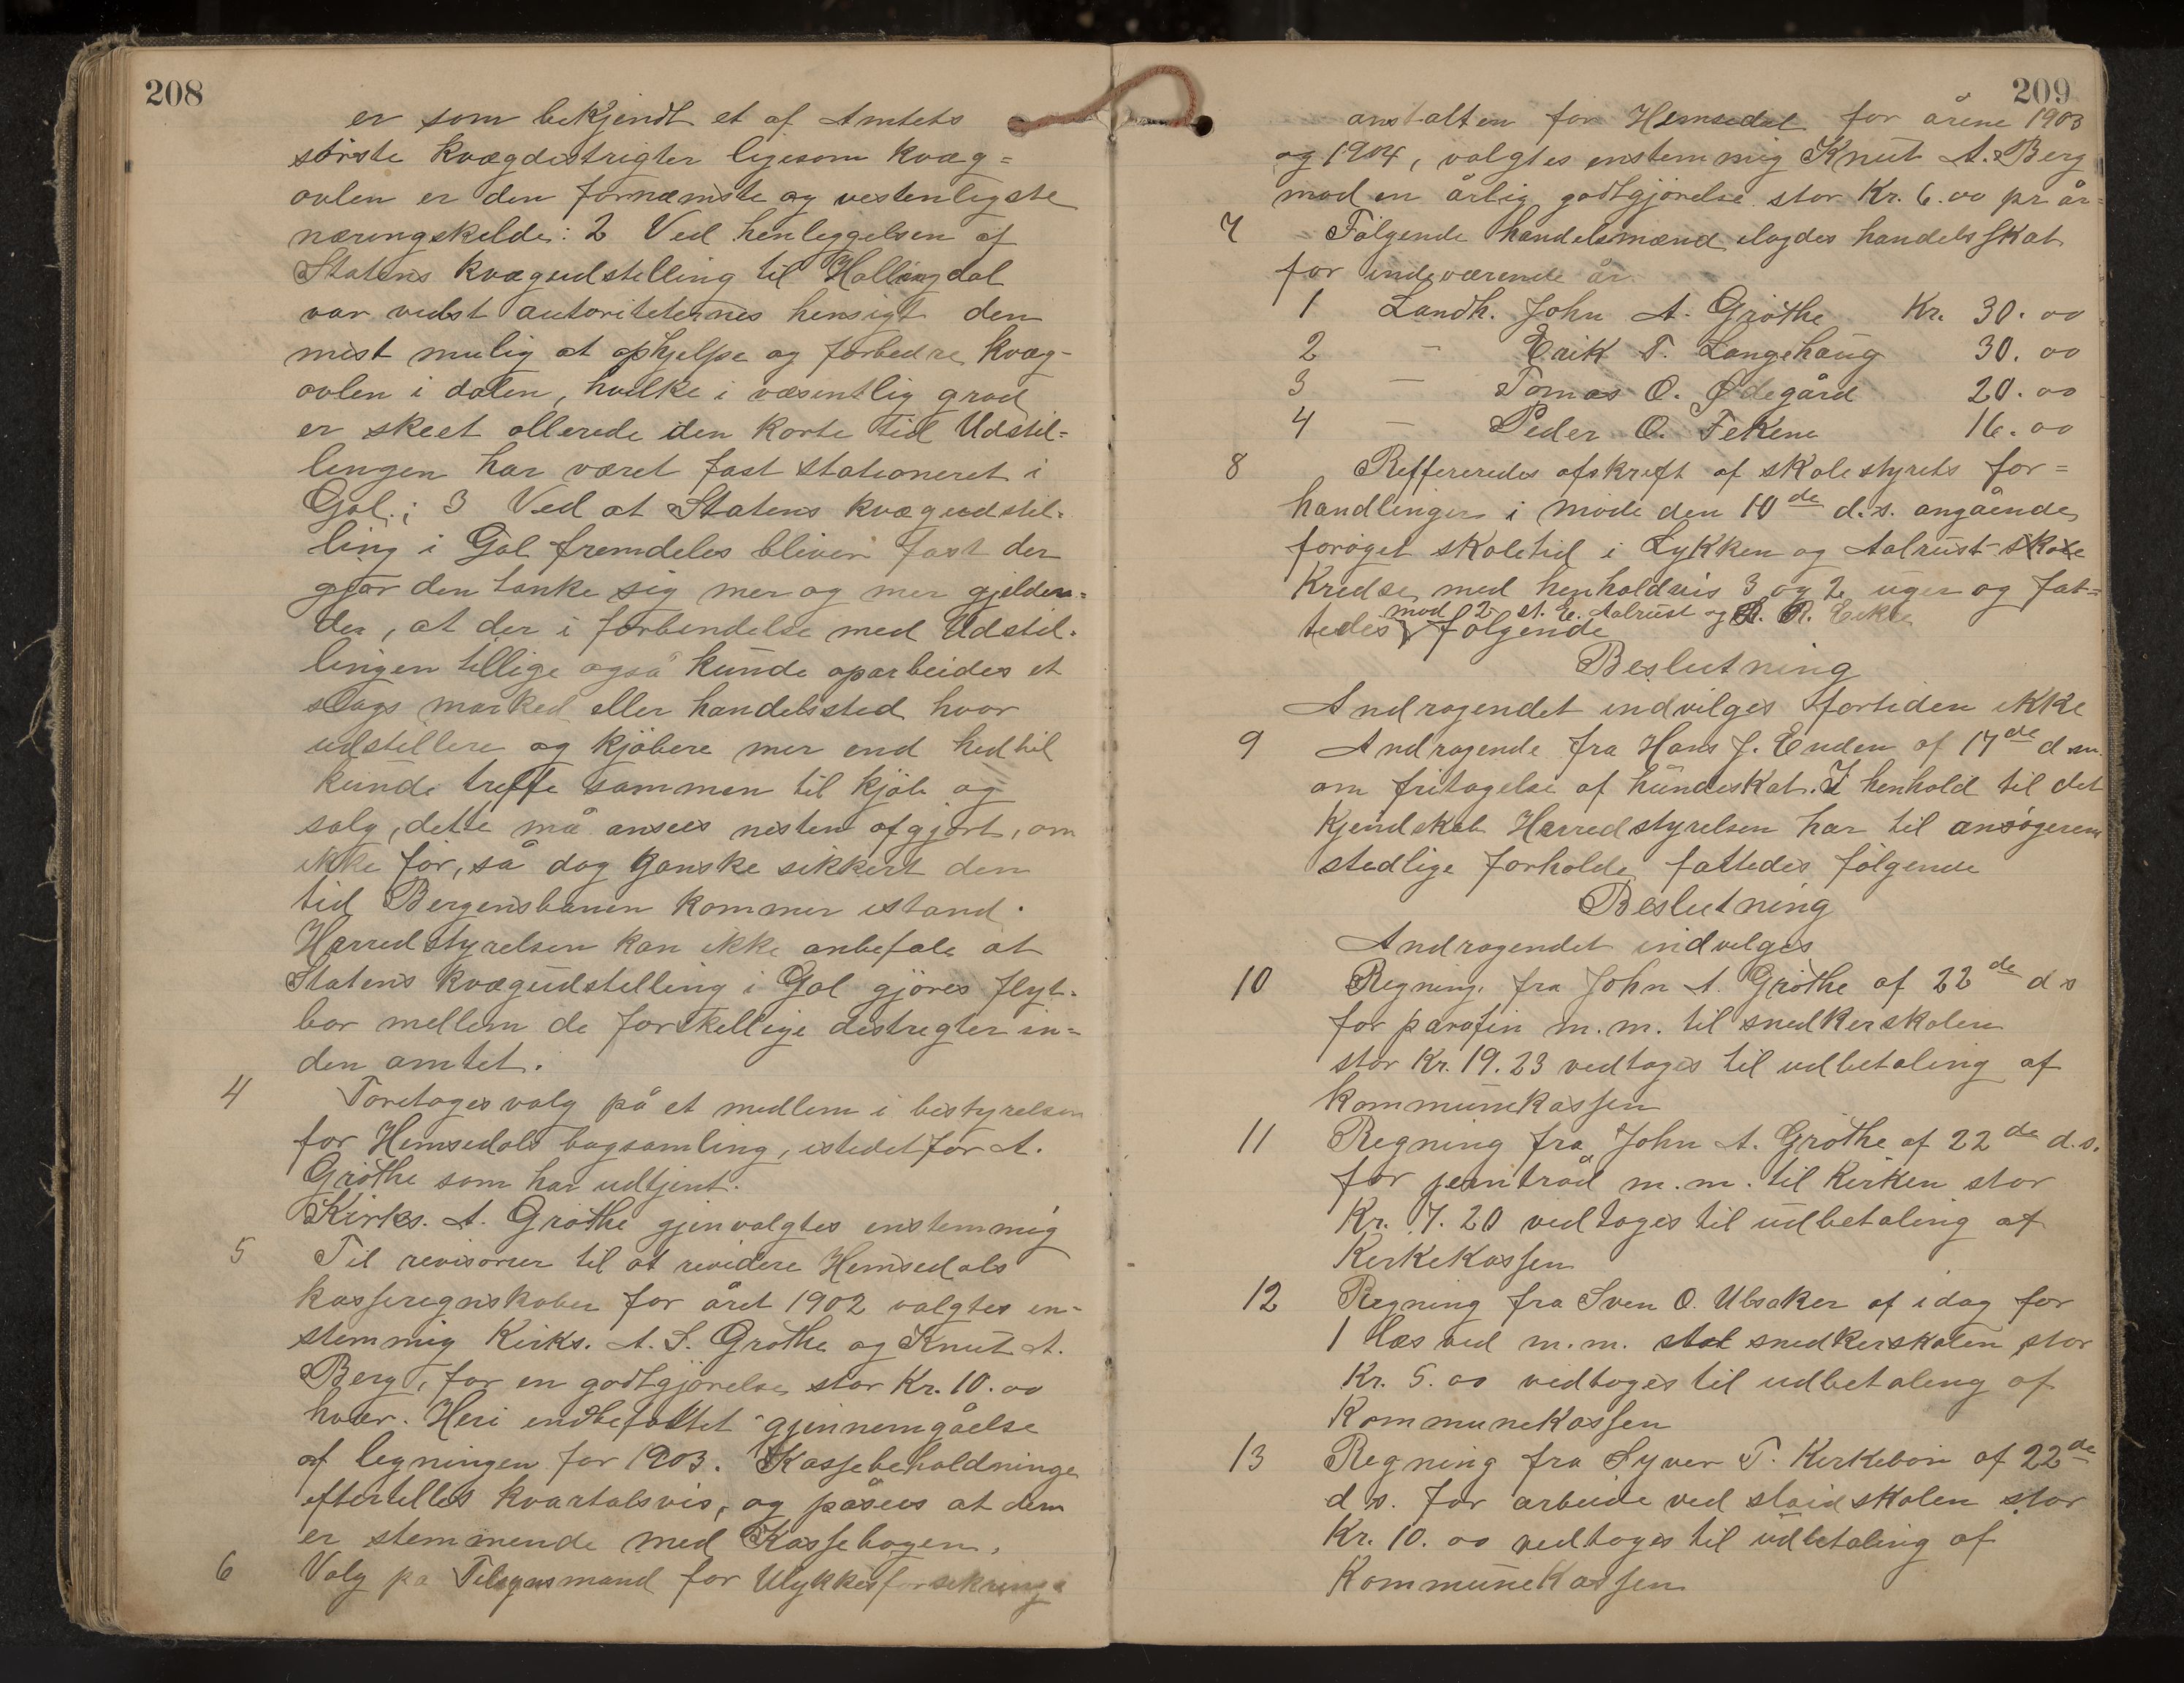 208
er som bekjendt et af Amtets
største kvægdistrigter ligesom kvæg=
avlen er den fornæmste og vestenligste
næringskilde: 2 Ved henleggelsen af
Statens kvægudstelling til Hallingdal
var vidst autoriteternes hensigt den
mest mulig at ophjelpe og forbedre kvæg-
avlen i dalen, hvilke i væsentlig grad
er skeet allerede den korte tid Udstil=
lingen har været fast stationeret i
Gol.; 3 Ved at Statens kvægudstil=
ling i Gol fremdeles bliver fast der
gjør den tanke sig mer og mer gjelden=
de, at der i forbindelse med Udstil=
lingen tillige også kunde oparbeides et
slags marked eller handelssted hvor
udstillere og kjøbere mer end hidtil
kunde treffe sammen til kjøb og
salg, dette må ansees nesten afgjort, om
ikke før, så dog ganske sikkert den
tid Bergensbanen kommer istand.
Herredstyrelsen kan ikke anbefale at
Statens kvægudstelling i Gol gjøres flyt=
bar mellem de forskellige distrigter in=
den amtet.
4 Foretoges valg på et medlem i bestyrelsen
for Hemsedals bogsamling, istedet for A.
Grøthe som har udtjent.
Kirks. A. Grøthe gjenvalgtes enstemmig
5 Til revisorer til at revidere Hemsedals
kasseregnskaber for året 1902 valgtes en-
stemmig Kirks. A. S. Grøthe og Knut A.
Berg, for en godtgjørelse stor Kr. 10.00
hver. Heri indbefattet gjennemgåelse
af legningen for 1903. Kassebeholdninge
eftertelles kvartalsvis, og påsees at den
er stemmende med Kassebogen.
6 Valg pa Tilsynsmand for Ulykkesforsikrings
209
anstalten for Hemsedal for årene 1903
og 1904, valgtes enstemmig Knut A. Berg
mod en årlig godtgjørelse stor Kr. 6.00 pr år=
7 Følgende handelsmænd ilagdes handelsskat
for indeværende år.
1 Landh. John A. Grøthe Kr. 30.00
2 — Erik T. Langehaug 30.00
3 — Tomas O. Ødegård 20.00
4 — Peder O. Fekene 16.00
8 Reffereredes afskrift af skolestyrets for=
handlinger i møde den 10de d.s. angående
forøget skoletid i Lykken og Aalrust skole
Kredse med henholdvis 3 og 2 uger og fat=
mod 2 st. E. Aalrust og R. Eikre
tedes følgende
Beslutning
Andragendet indvilges fortiden ikke
9 Andragende fra Hans J. Enden af 17de d.m.
om fritagelse af hundeskat. I henhold til det
kjendskab Herredstyrelsen har til ansøgerens
stedlige forholde fattedes følgende
Beslutning
Andragendet indvelges
10 Regning fra John A. Grøthe af 22de d s
for parafin m.m. til snedkerskolen
stor Kr. 19.23 vedtoges til udbetaling af
kommunekassen
11 Regning fra John A. Grøthe af 22de d.s.
for jerntråd m.m. til kirken stor
Kr. 7.20 vedtoges til udbetaling af
Kerkekassen
12 Regning fra Sven O. Ulsaker af idag for
1 læs ved m.m. snedkerskolen stor
Kr. 5.00 vedtoges til udbetaling af
Kommunekassen
13 Regning fra Syver T. Kerkebøn af 22de
d s. for arbeide ved sløidskolen stor
Kr. 10.00 vedtoges til udbetaling af
Kommunekassen